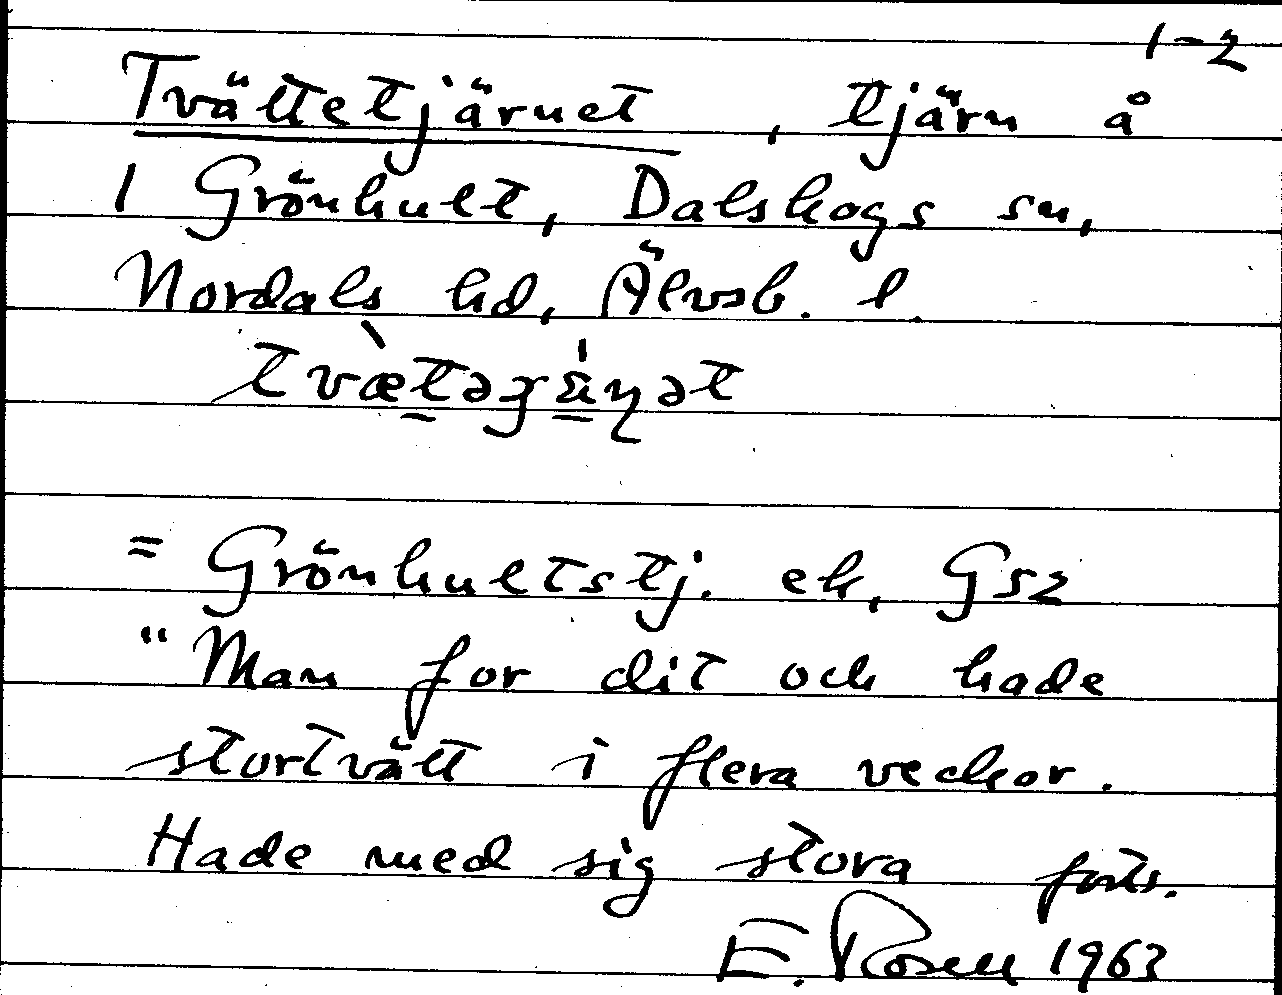 1-2
Tvättetjärnet, tjärn å
1 Grönhult, Dalskogs sn,
Nordals hd, Älvsb. l.
= Grönhultstj. ek, GS2
"Man for dit och hade
stortvätt i flera veckor.
Hade med sig stora forts.
E. Rosell 1963